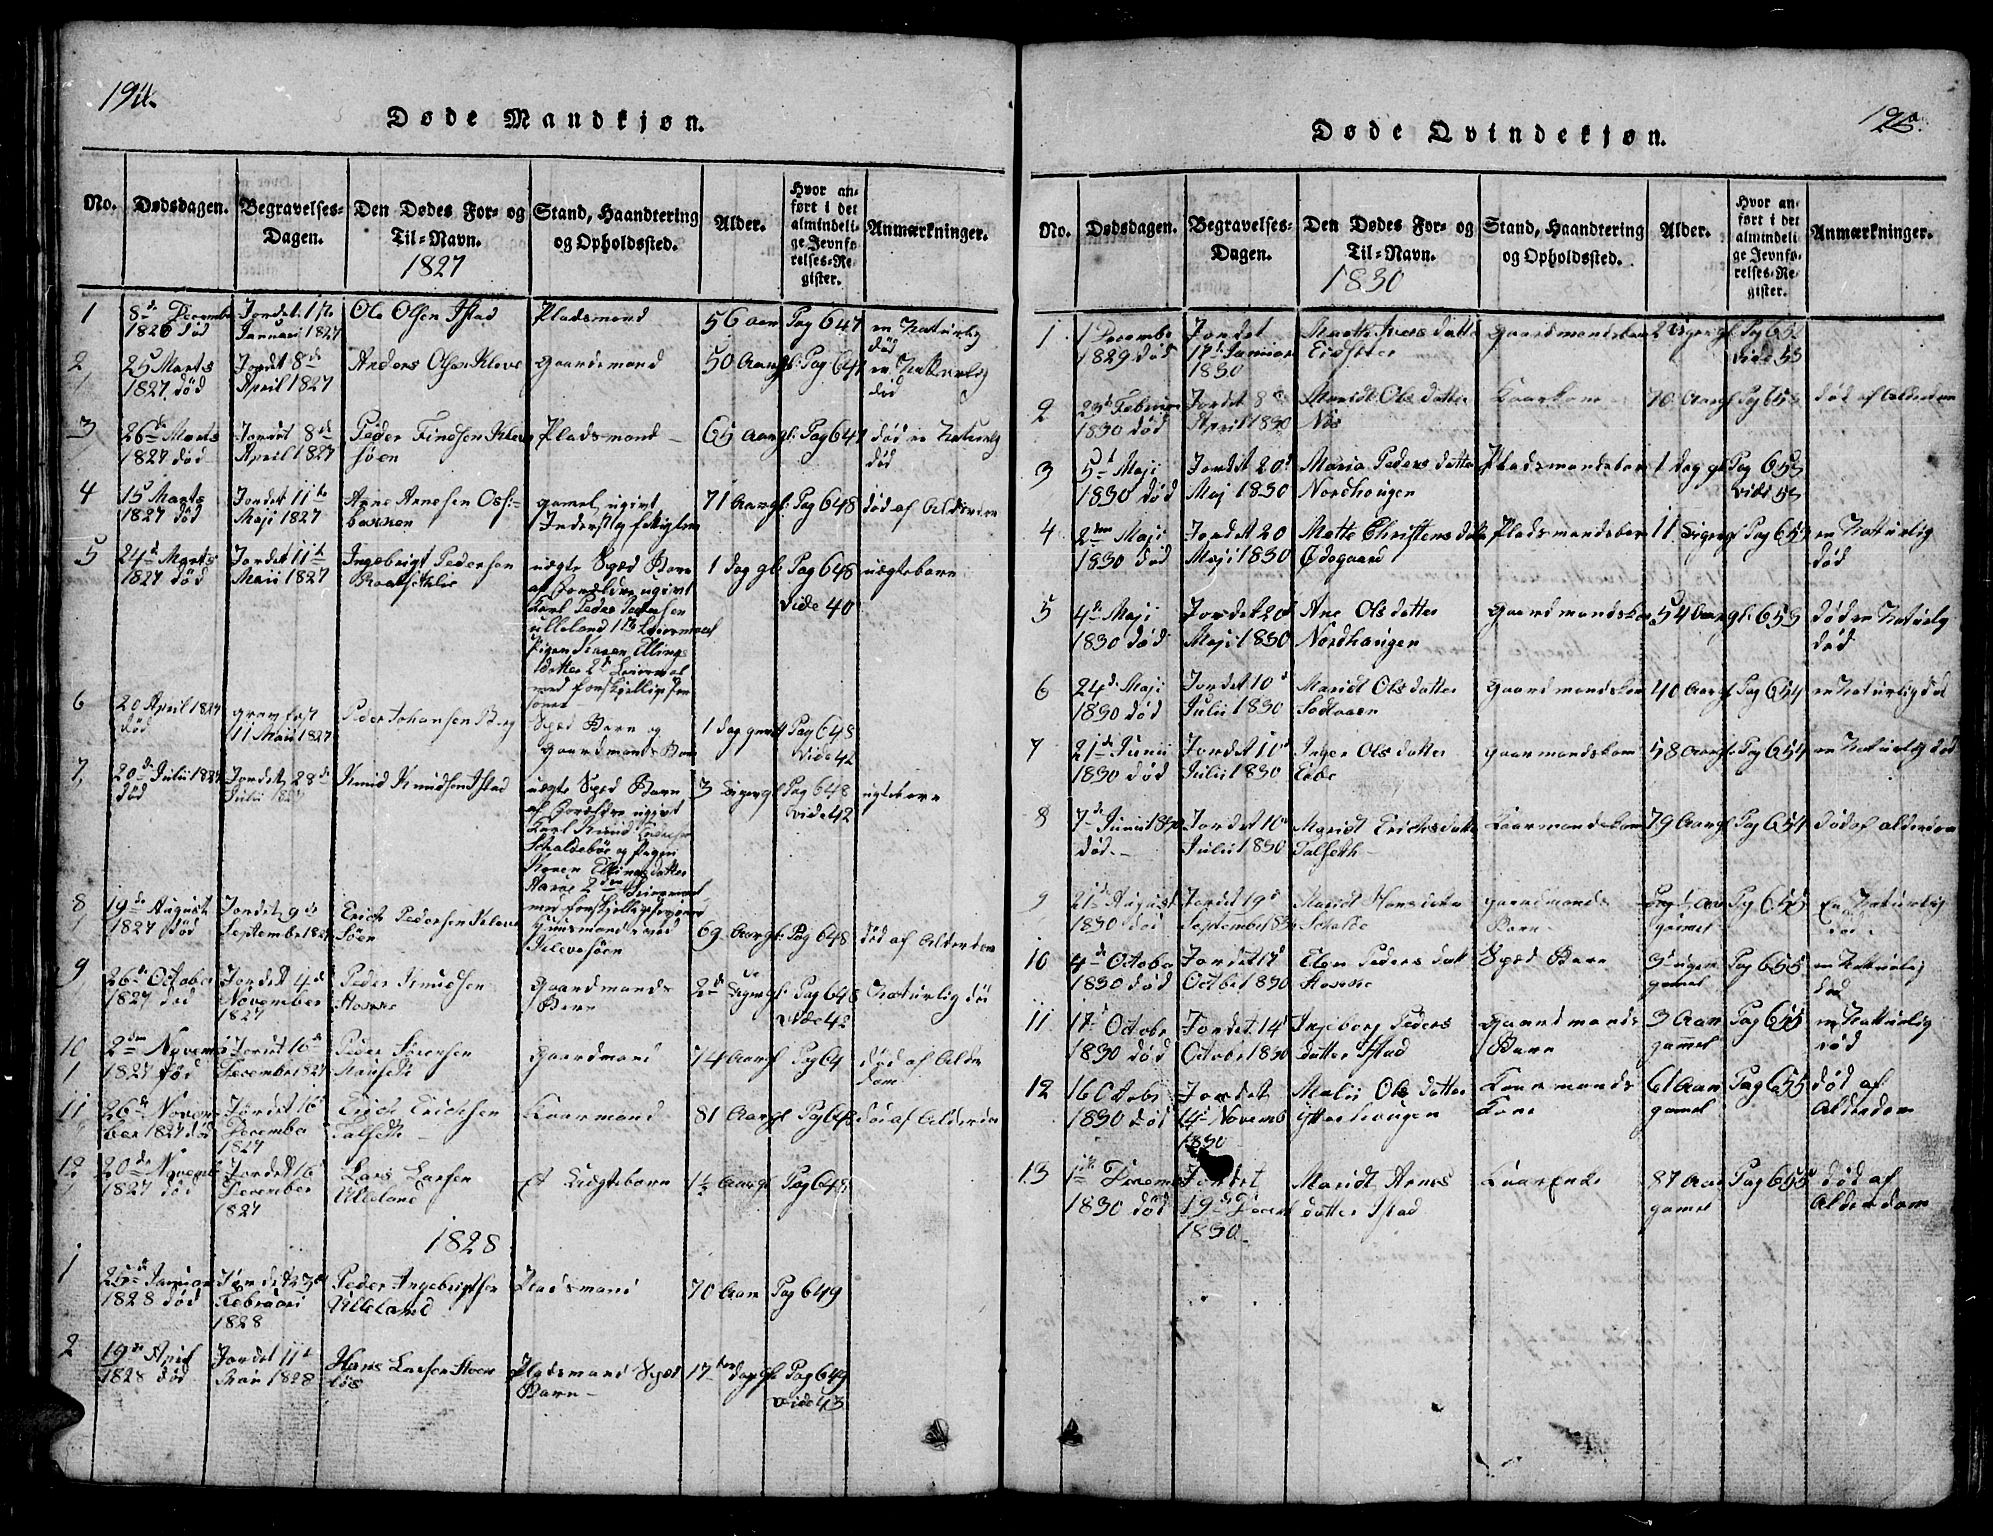 194.
Døde Mandkjøn.
No.
Dødsdagen.
Begravelses-
Dagen.
Den Dødes For- og
Til-Navn.
1827
Stand, Haandtering
og Opholdssted.
Alder.
Hvor an-
ført i det
almindeli-
ge Jevnfø-
relses-Re-
gister.
Anmærkninger.
1
8de Decembr
1826 død
Jordet 1ste
Januari 1827
Ole Olsen Istad
Pladsmand
56 aar
Pag 647
en Naturlig
død
2
25 Marts
1827 død
Jordet 8de
April 1827
Anders Olsen Kleve
Gaardmand
50 Aargl
Pag 647
en Naturlig
død
3
26de Marts
1827 død
Jordet 8de
April 1827
Peder Findsen Kleve
søen
Pladsmand
65 Aargl
Pag 647
død en Naturlig
død
4
15 Marts
1827 død
Jordet 11te
Maji 1827
Arne Arnesen
gamel ugivt
71 Aargl
Pag 648
død af Alderdom
5
24de Marts
1827 død
Jordet 11te
Maii 1827
Ingebrigt Pedersen
uægte Spæd Barn
af Foreldre ugivt
Karl Peder Pedersen
Ulleland
Pigen Karen Ellings
datter 2de Leiermaal
med forskjellige
1 dag gl
Pag 648
Vide 40
uægtebarn
6
20 April 1827
død
gravfæst
11 Maii 1827
Peder Johansen Berg
Spæd Barn og
gaardmands Barn
1 dag gamel
Pag 648
Vide 42
7
20de Julii 1827
død
Jordet 28de
Julii 1827
Knud Knudsen Istad
uægte Spæd Barn
af Foreldre ugivt
Karl Knud
Schaldebøe og Pigen
Karen Ellingsdatter
2den Leiermaal
med forskjellige
3
Pag 648
Vide 42
8
19de August
1827 død
Jordet 9de
September 1827
Erich Pedersen Kleve
Søen
Huusmand
69 Aargl
Pag 648
død af Alderdom
9
26de October
1827 død
Jordet 4de
November
1827
Peder Knudsen
Gaardmands
Barn
2
Pag 648
Vide 42
Naturlig
10
2den Novem
1827 død
Jordet 16de
December 1827
Peder Sørensen
Gaardmand
74 Aargl
Pag 64
død af Alder
dom
11
26de Novem
ber 1827 død
Jordet 16
December
1827
Erich Erichsen
Talseth
Kaarmand
81 Aargl
død af Alderdom
12
20de Novemb
1827 død
Jordet 16
December
1827
Lars Larsen
Ulleland
Et Uægtebarn
1½ Aargl
Pag 648
1828
1
25de Januar
1828 død
Jordet
Februari
1828
Peder Ingebrigtsen
Ulleland
Pladsmand
70 Aar
Pag 649
2
19de April
1828 død
Jordet 11te
Maii 1828
Hans Larsen
Pladsmand Spæd
Barn
17
Pag 649
Vide 43
Døde Qvindekjøn.
No.
Dødsdagen.
Begravelses-
Dagen.
Den Dødes For- og
Til-Navn.
1830
Stand, Haandtering
og Opholdssted.
Alder.
Hvor an-
ført i det
almindeli-
ge Jevnfø-
relses-Re-
gister.
Anmærkninger.
1
1 Decembe
1829 død
Jordet
17de Januar
1830
Marth Iversdatter
Gaardmandsbarn
Pag 652
Vide 53
2
23de Februar
1830 død
Jordet 8de
April 1830
Maridt Olsdatter
Næs
Kaarkone
70 Aargl
død af Alderdom
3
5te Maji
1830 død
Jordet 20de
Maj 1830
Maria Pedersdatter
Nordhaugen
Pladsmandsbarn
1 dag gl
Pag 653
Vide 53
4
2den Maji
1830 død
Jordet 20
Maji 1830
Mette Christensdatter
Ødegaard
Pladsmandsbarn
Pag 653
en Naturlig
død
5
4de Maji
1830 død
Jordet 20de
Maji 1830
Ane Olsdatter
Nordhaugen
Gaardmandskone
54 aargl
653
død en Naturlig
død
6
24de Maji
1830 død
Jordet 10de
Julii 1830
Maridt Olsdatter
Gaardmandskone
40 Aargl
Pag 654
en Naturlig død
7
21de Junii
1830 død
Jordet 10de
Julii 1830
Inger Olsdatter
Eide
Gaarmandskone
58 Aargl
Pag 654
en Naturlig død
8
7de Junii 1830
død
Jordet 10de
Julii 1830
Maridt Erichsdatter
Talseth
Kaarmandskone
79 Aargl
Pag 654
død af alderdom
9
21de August
1830 død
Jordet 19de
September 1830
Maridt Hansdatter
gaardmands
Barn
gamel
Pag 655
En Naturlig
død
10
4de October
1830 død
Jordet 17de
Octobr 1830
Elen Peders datt
Spæd Barn
3 uger
gamel
Pag 655
en Naturlig
død
11
17de October
1830 død
Jordet 14de
October 1830
Ingeborg Peders
datter Istad
Gaardmands
Barn
3 Aar
gammel
Pag 655
en Naturlig
død
12
16 October
1830 død
Jordet
14de Novemb
1830
Malii Olsdatter
Ytterhaugen
Kaarmands
Kone
61 Aar
gamel
Pag 655
død af
Alderdom
13
1ste Decem
1830 død
Jordet
19de Decem
1830
Maridt Arnes
datter Istad
Kaar Enke
87 Aar
gamel
Pag 655
død af
Alderdom